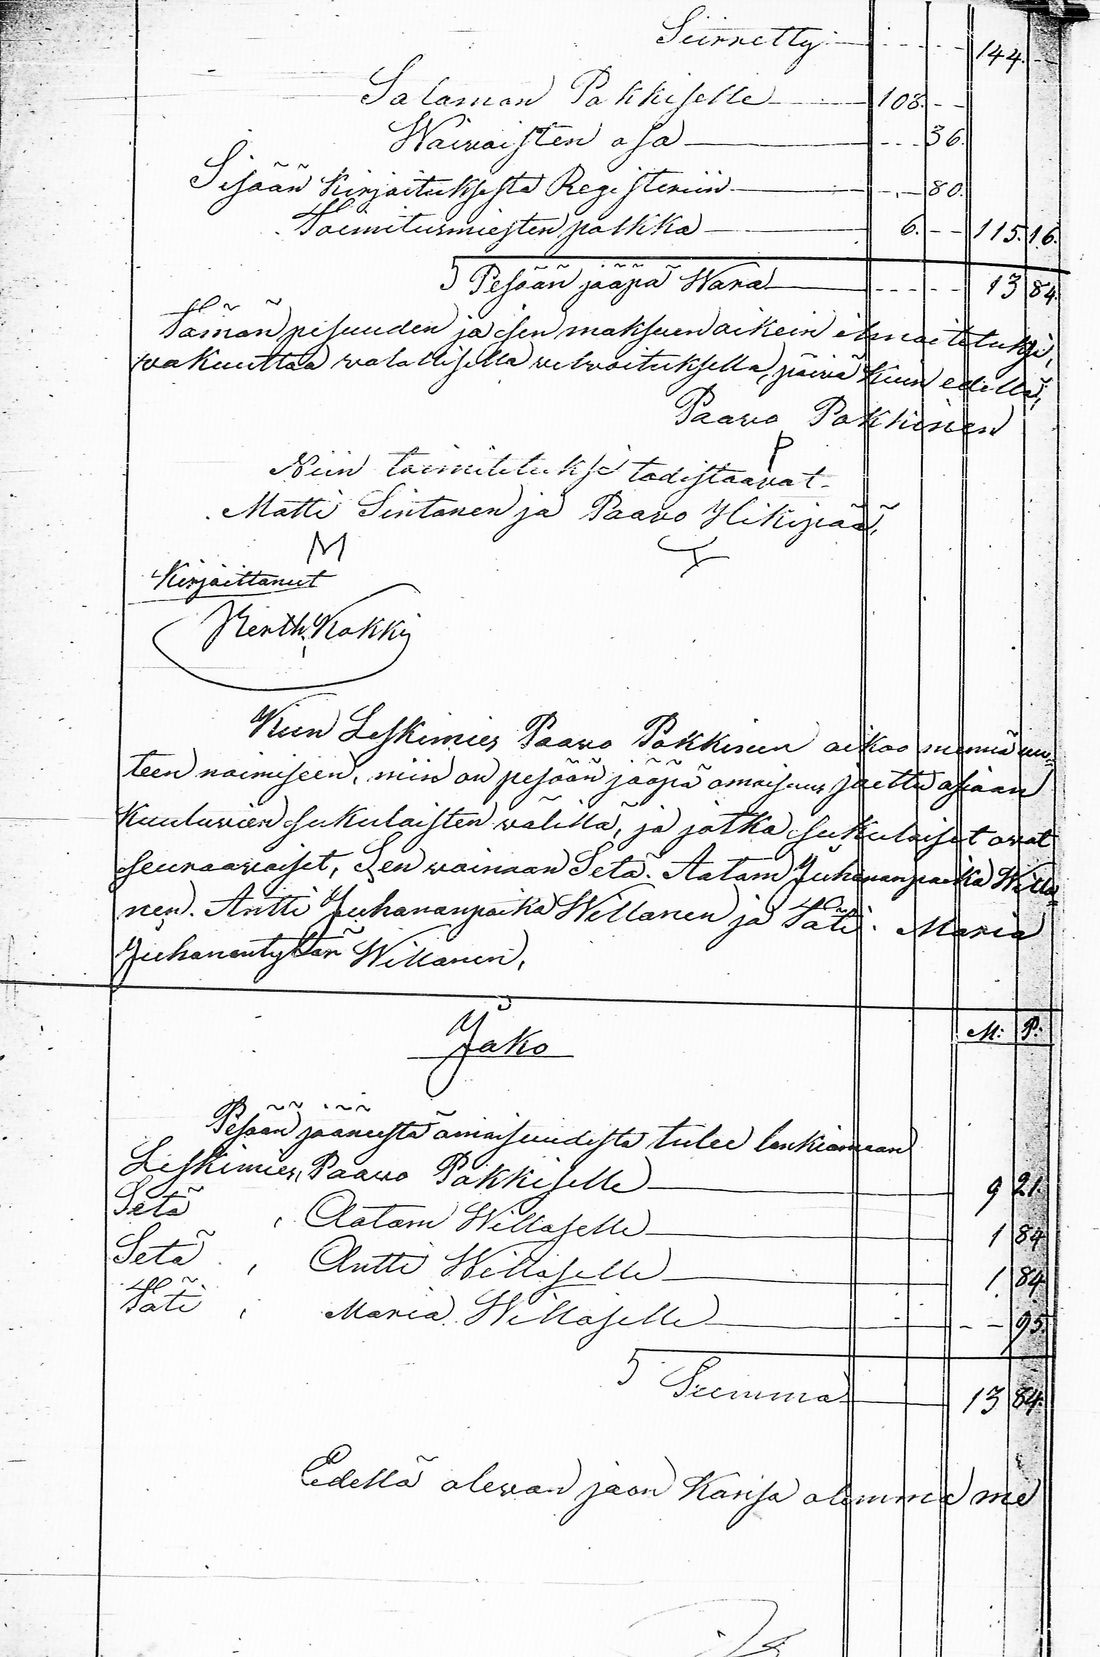 Siirretty 144
Salamon Pakkiselle 108
Waivaisten osa 36.
Sisään Kirjoituksesta Registeriin 80.
Toimitusmiesten palkka 6. 115. 16.
Pesään jääpä Wara 13 84.
Tämän pesuuden ja sen maksuen aikein ilmoitetuksi,
vakuuttaa walallisella velvoituksella, päivä kuin edellä,
Paavo Pakkinen
P
Niin toimitetuksi todistaavat
Matti Sintonen ja Paavo Hikipää,
M
Kirjoittanut
Kokki
Kun Leskimies Paavo Pakkinen aikoo mennä uu-
teen naimiseen, niin on pesään jääpä omaisuus jaettu asiaan
Kuuluvien sukulaisten välillä, ja jotka sukulaiset ovat
seuraavaiset, Sen vainaan Setä. Aatam Juhananpoika Willa-
nen. Antti Juhananpoika Willanen ja Täti. Maria
Juhanantytär Willanen,
Jako
M: P:
Pesään jääneestä omaisuudesta tulee lankiamaan
Leskimies, Paavo Pakkiselle 9 21.
Setä , Aatam Willaselle 1 84
Setä , Antti Willaselle 1. 84
Täti , Maria Willaselle 95.
Summa 13 84.
Edellä olevan jaon Kanssa olemme me